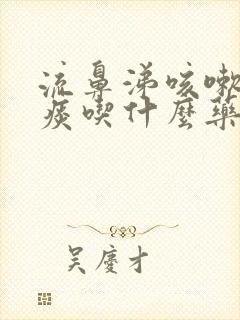 流鼻涕咳嗽
痰喫什麼藥
吴慶才